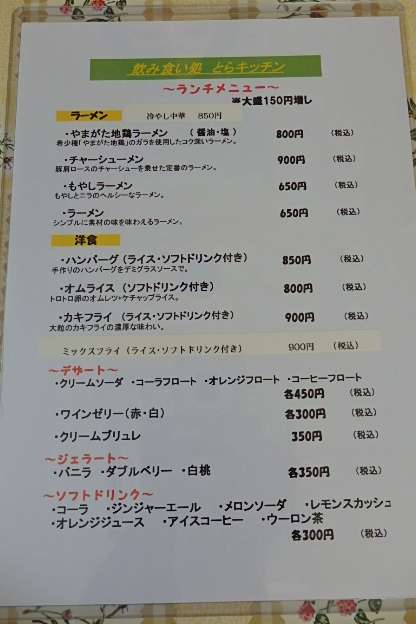 飲み食い処 とらキッチン
～ランチメニュー～
※大盛150円増し
ラーメン 冷やし中華 850円
・やまがた地鶏ラーメン （醤油・塩） 800円 （税込）
希少種「やまがた地鶏」のガラを使用したコク深いラーメン。
・チャーシューメン 900円 （税込）
豚肩ロースのチャーシューを乗せた定番のラーメン。
・もやしラーメン 650円 （税込）
もやしとニラのヘルシーなラーメン。
・ラーメン 650円 （税込）
シンプルに素材の味を味わえるラーメン。
洋食
・ハンバーグ（ライス・ソフトドリンク付き） 850円 （税込）
手作りのハンバーグをデミグラスソースで。
・オムライス （ソフトドリンク付き） 800円 （税込）
トロトロ卵のオムレツ・ケチャップライス。
・カキフライ （ライス・ソフトドリンク付き） 900円 （税込）
大粒のカキフライの濃厚な味わい。
ミックスフライ（ライス・ソフトドリンク付き） 900円 （税込）
～デザート～
・クリームソーダ ・コーラフロート ・オレンジフロート ・コーヒーフロート
各450円 （税込）
・ワインゼリー（赤・白） 各300円 （税込）
・クリームブリュレ 350円 （税込）
～ジェラート～
・バニラ ・ダブルベリー ・白桃 各350円 （税込）
～ソフトドリンク～
・コーラ ・ジンジャーエール ・メロンソーダ ・レモンスカッシュ
・オレンジジュース ・アイスコーヒー ・ウーロン茶
各300円 （税込）